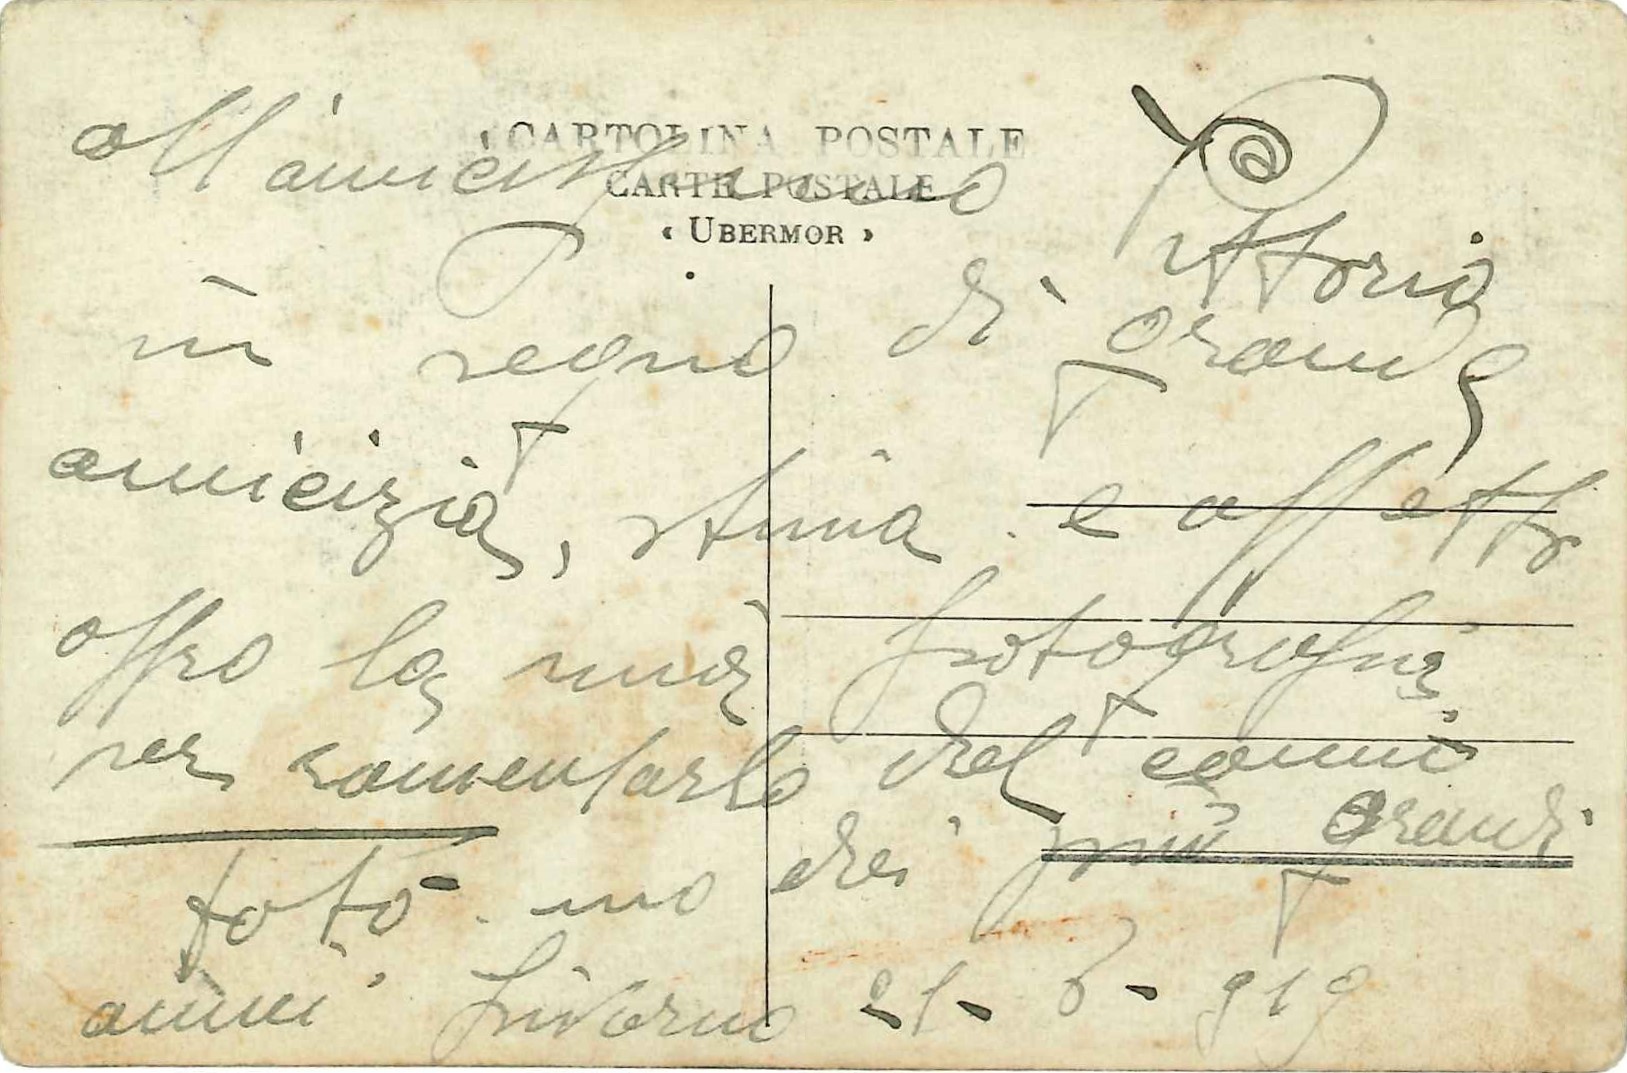 CARTOLINA POSTALE
CARTE POSTALE
« UBERMOR »
all'amicissimo Vittorio
in segno di grande
amicizia, stima e affetto
offro la mia fotografia
per ramentarlo del
dei più grandi
foto. mo
amici Livorno 21-6-919